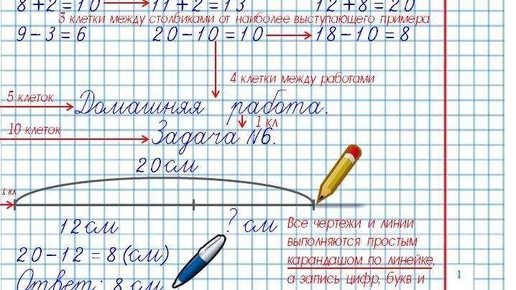 8+2=10 11+2=13 12+8=20
3 клетки между столбиками от наиболее выступающего примера
9-3=6 20-10=10 18-10=8
4 клетки между работами
5 клеток Домашняя работа.
1 кл
10 клеток Задача №6.
20 см
1 кл
12 см ? см
Все чертежи и линии
выполняются простым
20-12=8 (см) карандашом по линейке,
Ответ: 8 см а запись цифр, букв и
1